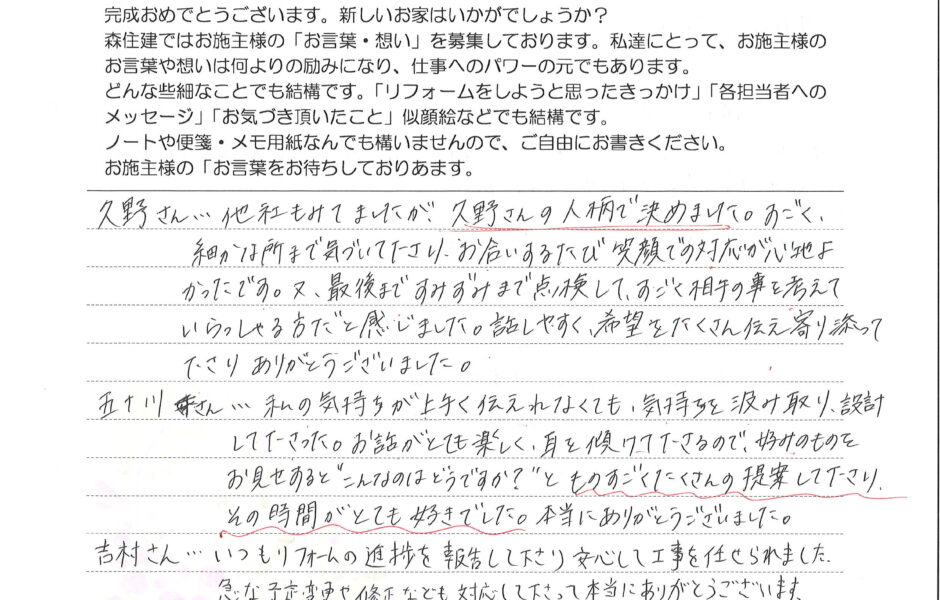 完成おめでとうございます。新しいお家はいかがでしょうか？
森住建ではお施主様の「お言葉・想い」を募集しております。私達にとって、お施主様の
お言葉や想いは何よりの励みになり、仕事へのパワーの元でもあります。
どんな些細なことでも結構です。「リフォームをしようと思ったきっかけ」「各担当者への
メッセージ」「お気づき頂いたこと」似顔絵などでも結構です。
ノートや便箋・メモ用紙なんでも構いませんので、ご自由にお書きください。
お施主様の「お言葉をお待ちしておりあます。
久野さん… 他社もみてましたが、久野さんの人柄で決めました。すごく、
細かな所まで気づいて下さり、お合いするたび笑顔での対応が心地よ
かったです。又、最後まですみずみまで点検して、すごく相手の事を考えて
いらっしゃる方だと感じました。話しやすく、希望をたくさん伝え寄り添って
下さり ありがとうございました。
五十川さん… 私の気持ちが上手く伝えれなくても、気持ちを汲み取り、設計
して下さった。お話がとても楽しく、耳を傾けて下さるので、好みのものを
お見せすると"こんなのはどうですか？"と ものすごくたくさんの提案して下さり、
その時間がとても好きでした。本当にありがとうございました。
吉村さん… いつもリフォームの進捗を報告して下さり安心して工事を任せられました。
急な予定変更や修正なども対応して下さって本当にありがとうございます